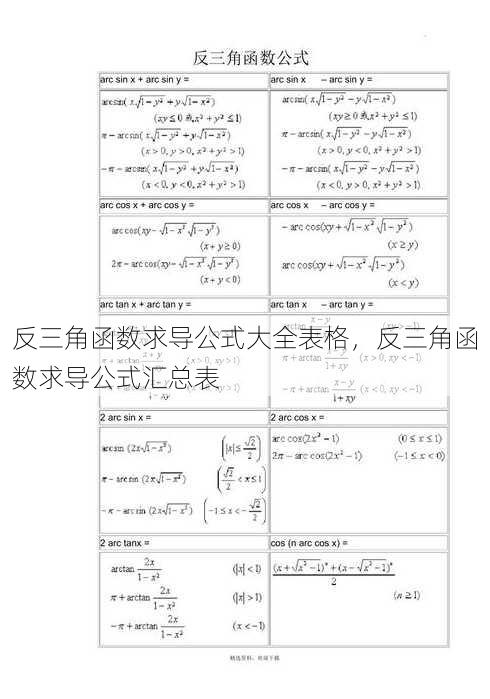 反三角函数公式
arc sin x + arc sin y =
arc sin x – arc sin y =
arcsin( x√1-y² + y√1-x²)
(xy ≤ 0 或 x²+y² ≤ 1)
π - arcsin( x√1-y² + y√1-x²)
(x > 0, y > 0, x²+y² > 1)
-π - arcsin( x√1-y² + y√1-x²)
(x < 0, y < 0, x²+y² > 1)
arcsin( x√1-y² - y√1-x²)
(xy ≥ 0 或 x²+y² ≤ 1)
π - arcsin( x√1-y² - y√1-x²)
(x > 0, y < 0, x²+y² > 1)
-π - arcsin( x√1-y² - y√1-x²)
(x < 0, y > 0, x²+y² > 1)
arc cos x + arc cos y =
arc cos x – arc cos y =
arc cos(xy - √1-x² √1-y²)
(x+y ≥ 0)
2π - arc cos(xy - √1-x² √1-y²)
(x+y < 0)
- arc cos(xy + √1-x² √1-y²)
(x ≥ y)
arc cos(xy + √1-x² √1-y²)
(x < y)
arc tan x + arc tan y =
arc tan x – arc tan y =
反三角函数求导公式大全表格，反三角函
数求导公式汇总表
2 arc sin x =
2 arc cos x =
arcsin (2x√1-x²) (|x| ≤ √2/2)
π - arcsin (2x√1-x²) (√2/2 < x ≤ 1)
-π - arcsin (2x√1-x²) (-1 ≤ x < -√2/2)
arc cos(2x² - 1) (0 ≤ x ≤ 1)
2π - arc cos(2x² - 1) (-1 ≤ x < 0)
2 arc tanx =
cos (n arc cos x) =
arctan 2x/1-x² (|x| < 1)
π + arctan 2x/1-x² (|x| > 1)
-π + arctan 2x/1-x² (x < -1)
(x+√x²-1)ⁿ + (x-√x²-1)ⁿ/2
(n ≥ 1)